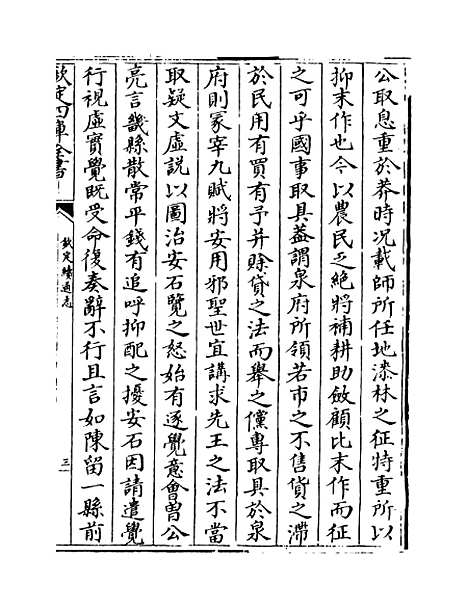 公取息重於莽時况載師所任地漆林之征特重所以
抑末作也今以農民乏絶將補耕助斂顧比末作而征
之可乎國事取具葢謂泉府所領若市之不售貨之滯
於民用有買有予并賖貸之法而舉之儻專取具於泉
府則冢宰九賦將安用邪聖世宜講求先王之法不當
取疑文虛説以圖治安石覽之怒始有逐覺意會曽公
亮言畿縣散常平錢有追呼抑配之擾安石因請遣覺
行視虛實覺既受命復奏辭不行且言如陳留一縣前
欽定四庫全書
欽定續通志
三